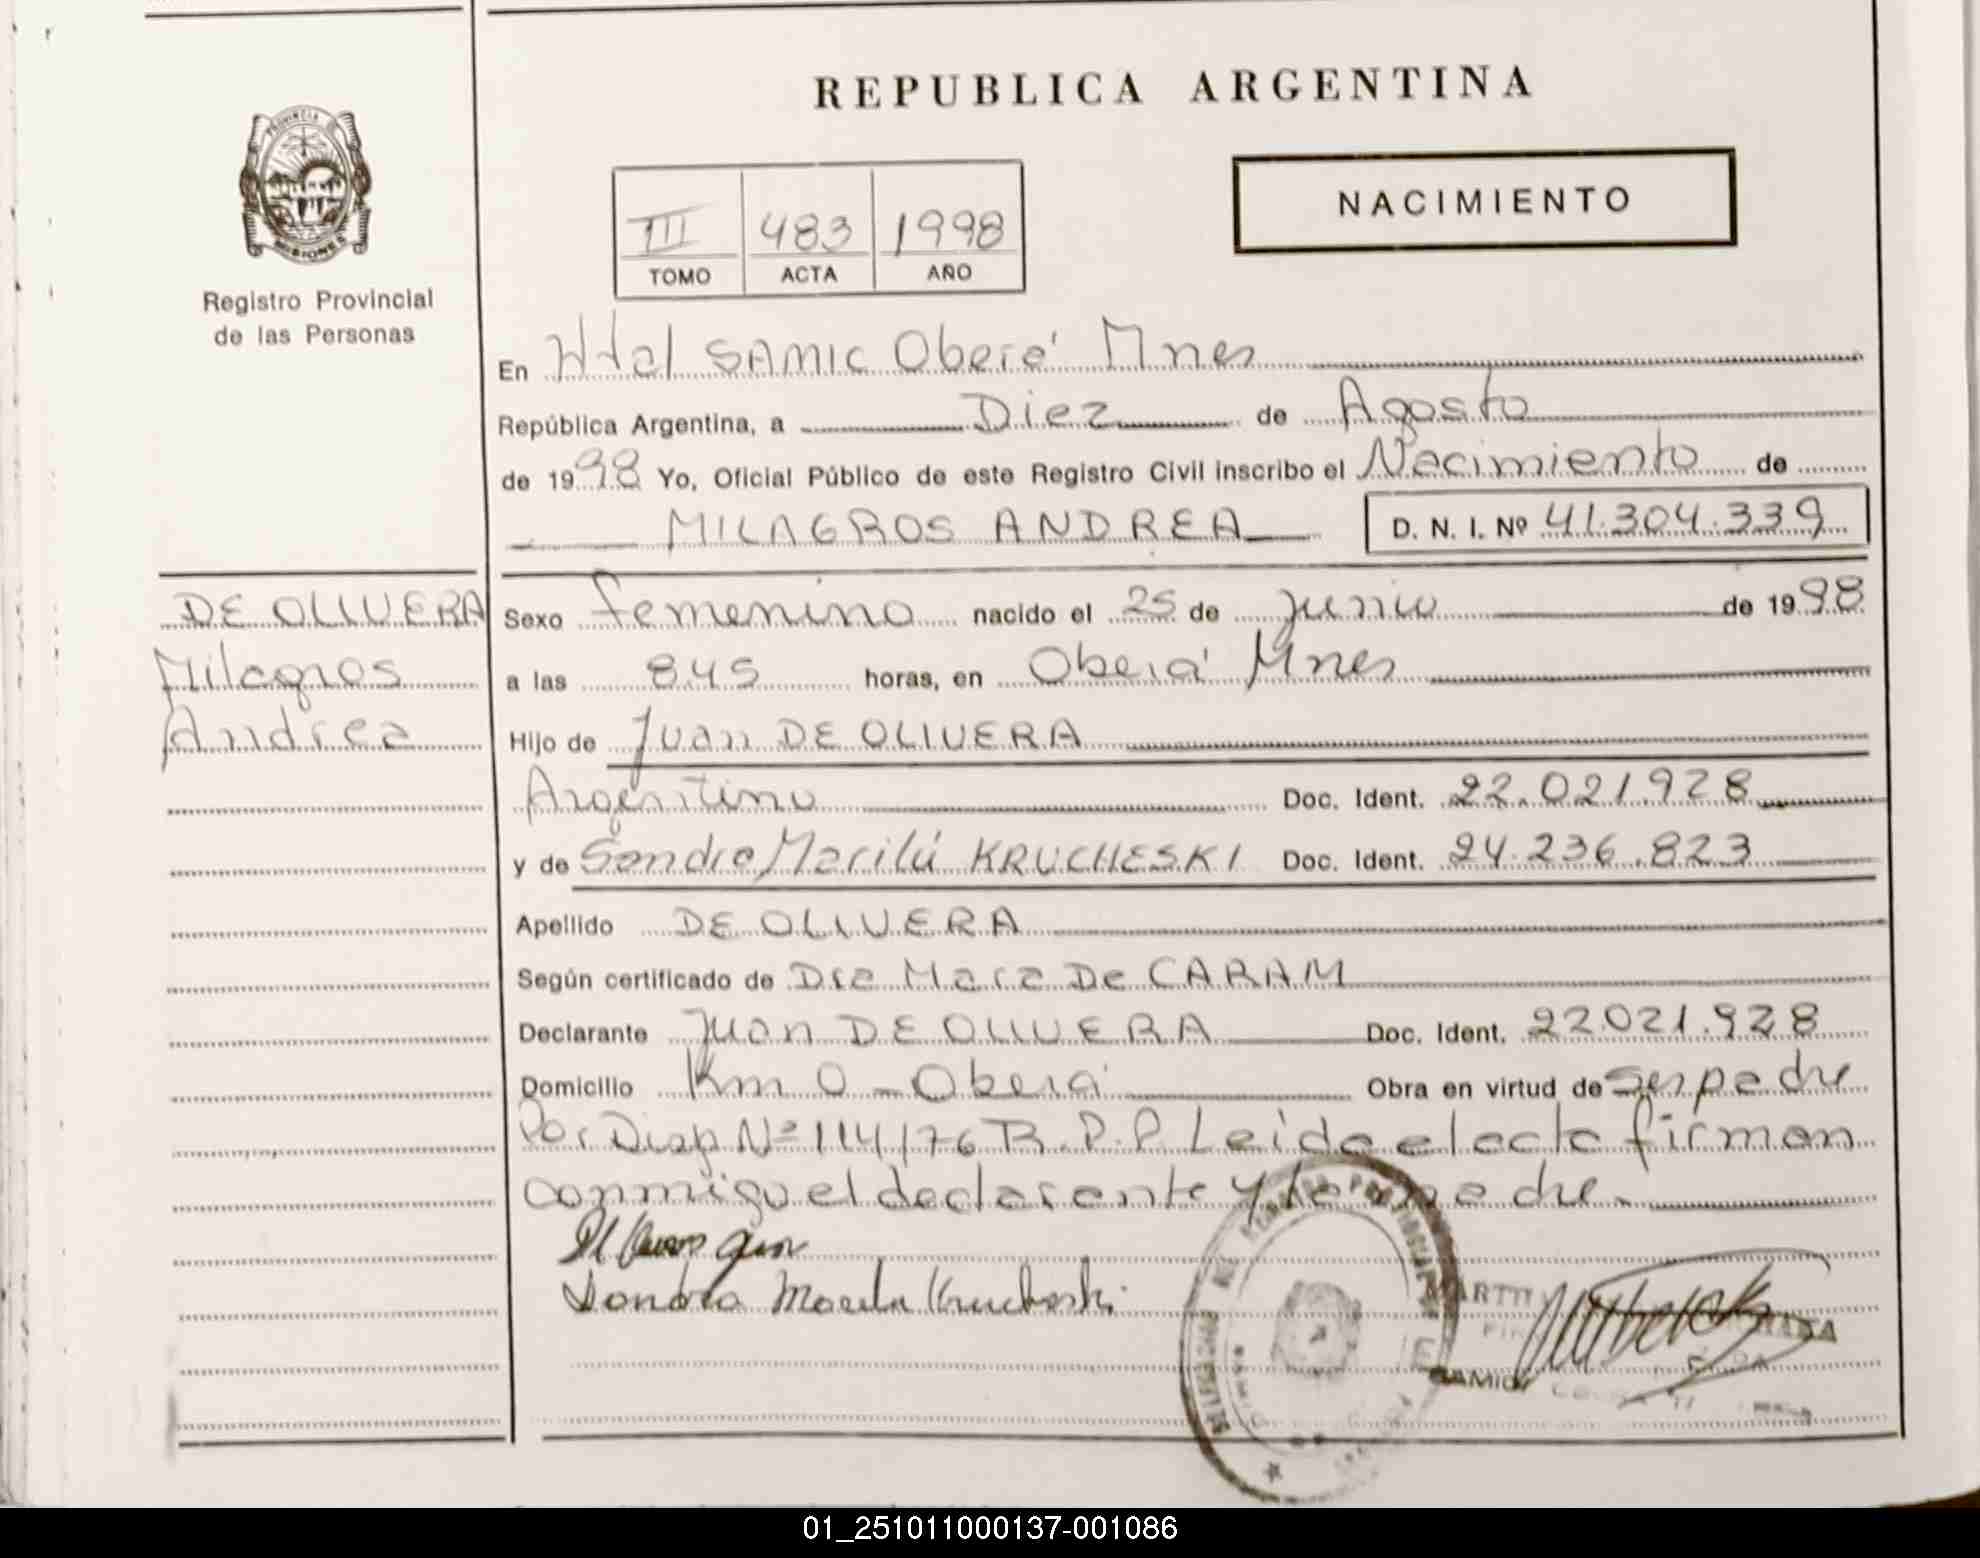 REPUBLICA ARGENTINA
PROVINCIA DE
MISIONES
Registro Provincial
de las Personas
NACIMIENTO
III 483 1998
TOMO ACTA AÑO
En Htal SAMIC Oberá Mnes
República Argentina, a Diez de Agosto
de 1998 Yo, Oficial Público de este Registro Civil inscribo el Nacimiento de
MILAGROS ANDREA D. N. I. Nº 41.304.339
DE OLIVERA
Milagros
Andrea
Sexo femenino nacido el 25 de junio de 1998
a las 845 horas, en Oberá Mnes
Hijo de Juan DE OLIVERA
Argentino Doc. Ident. 22.021.928
y de Sandra Marilú KRUCHESKI Doc. Ident. 24.236.823
Apellido DE OLIVERA
Según certificado de Dra Mara De CARAM
Declarante Juan DE OLIVERA Doc. Ident. 22.021.928
Domicilio Km 0 - Oberá Obra en virtud de ser padre
Por Disp Nº 114/76 R.P.P. Leida el acta firman
conmigo el declarante y la madre.
01_251011000137-001086